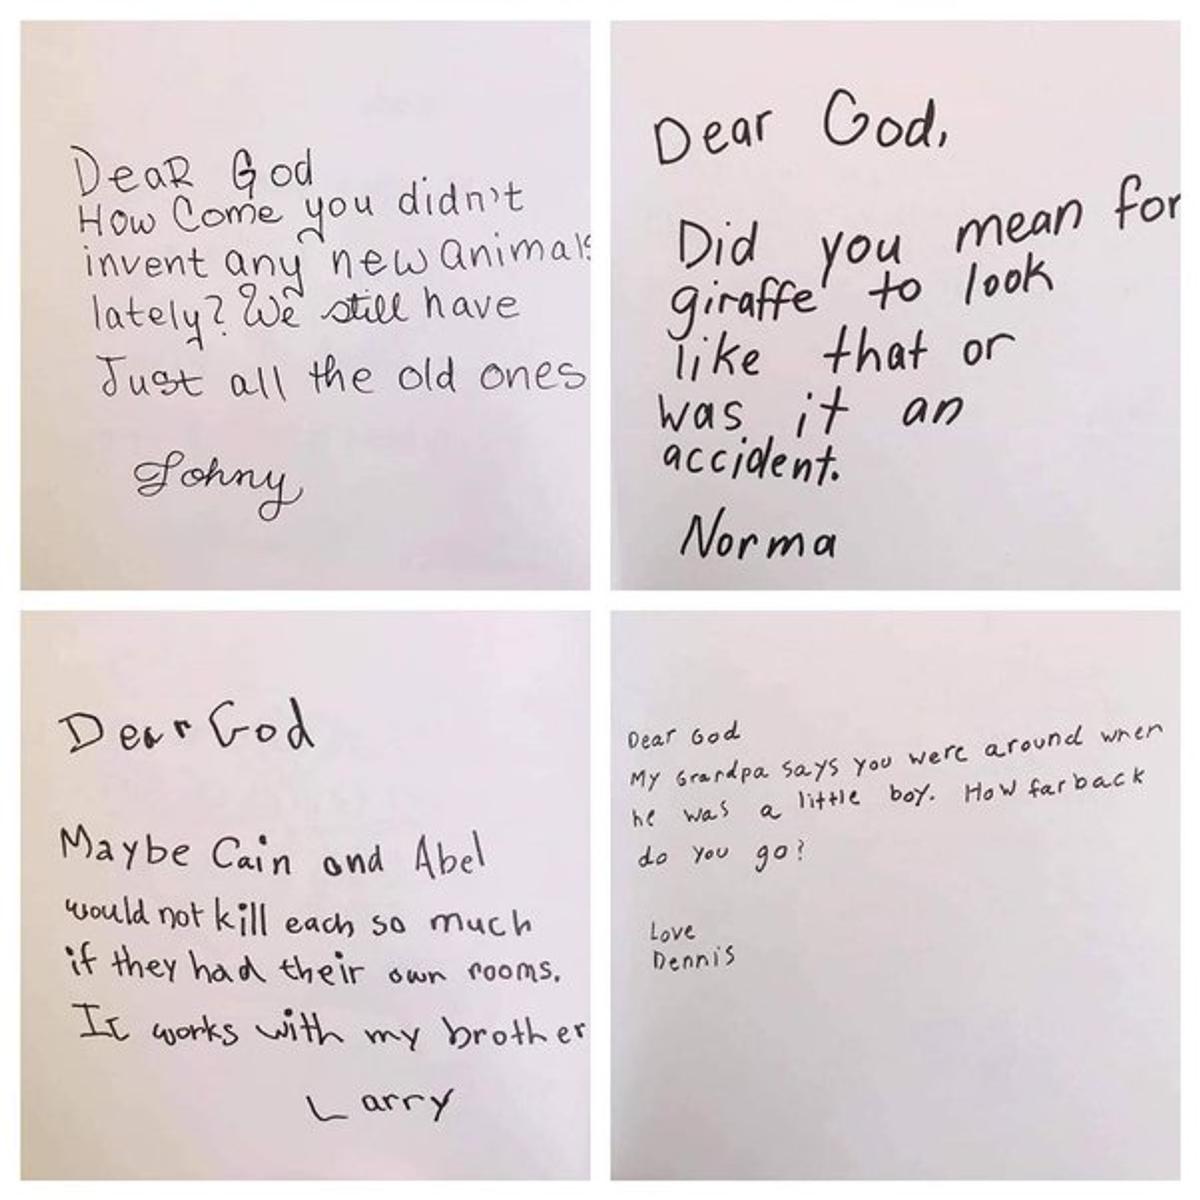 Dear God
How Come you didn't
invent any new animals
lately? We still have
Just all the old ones
Johny
Dear God,
Did you mean for
giraffe to look
like that or
was it an
accident.
Norma
Dear God
Maybe Cain and Abel
would not kill each so much
if they had their own rooms.
It works with my brother
Larry
Dear God
My Grandpa says you were around when
he was a little boy. How far back
do you go?
Love
Dennis